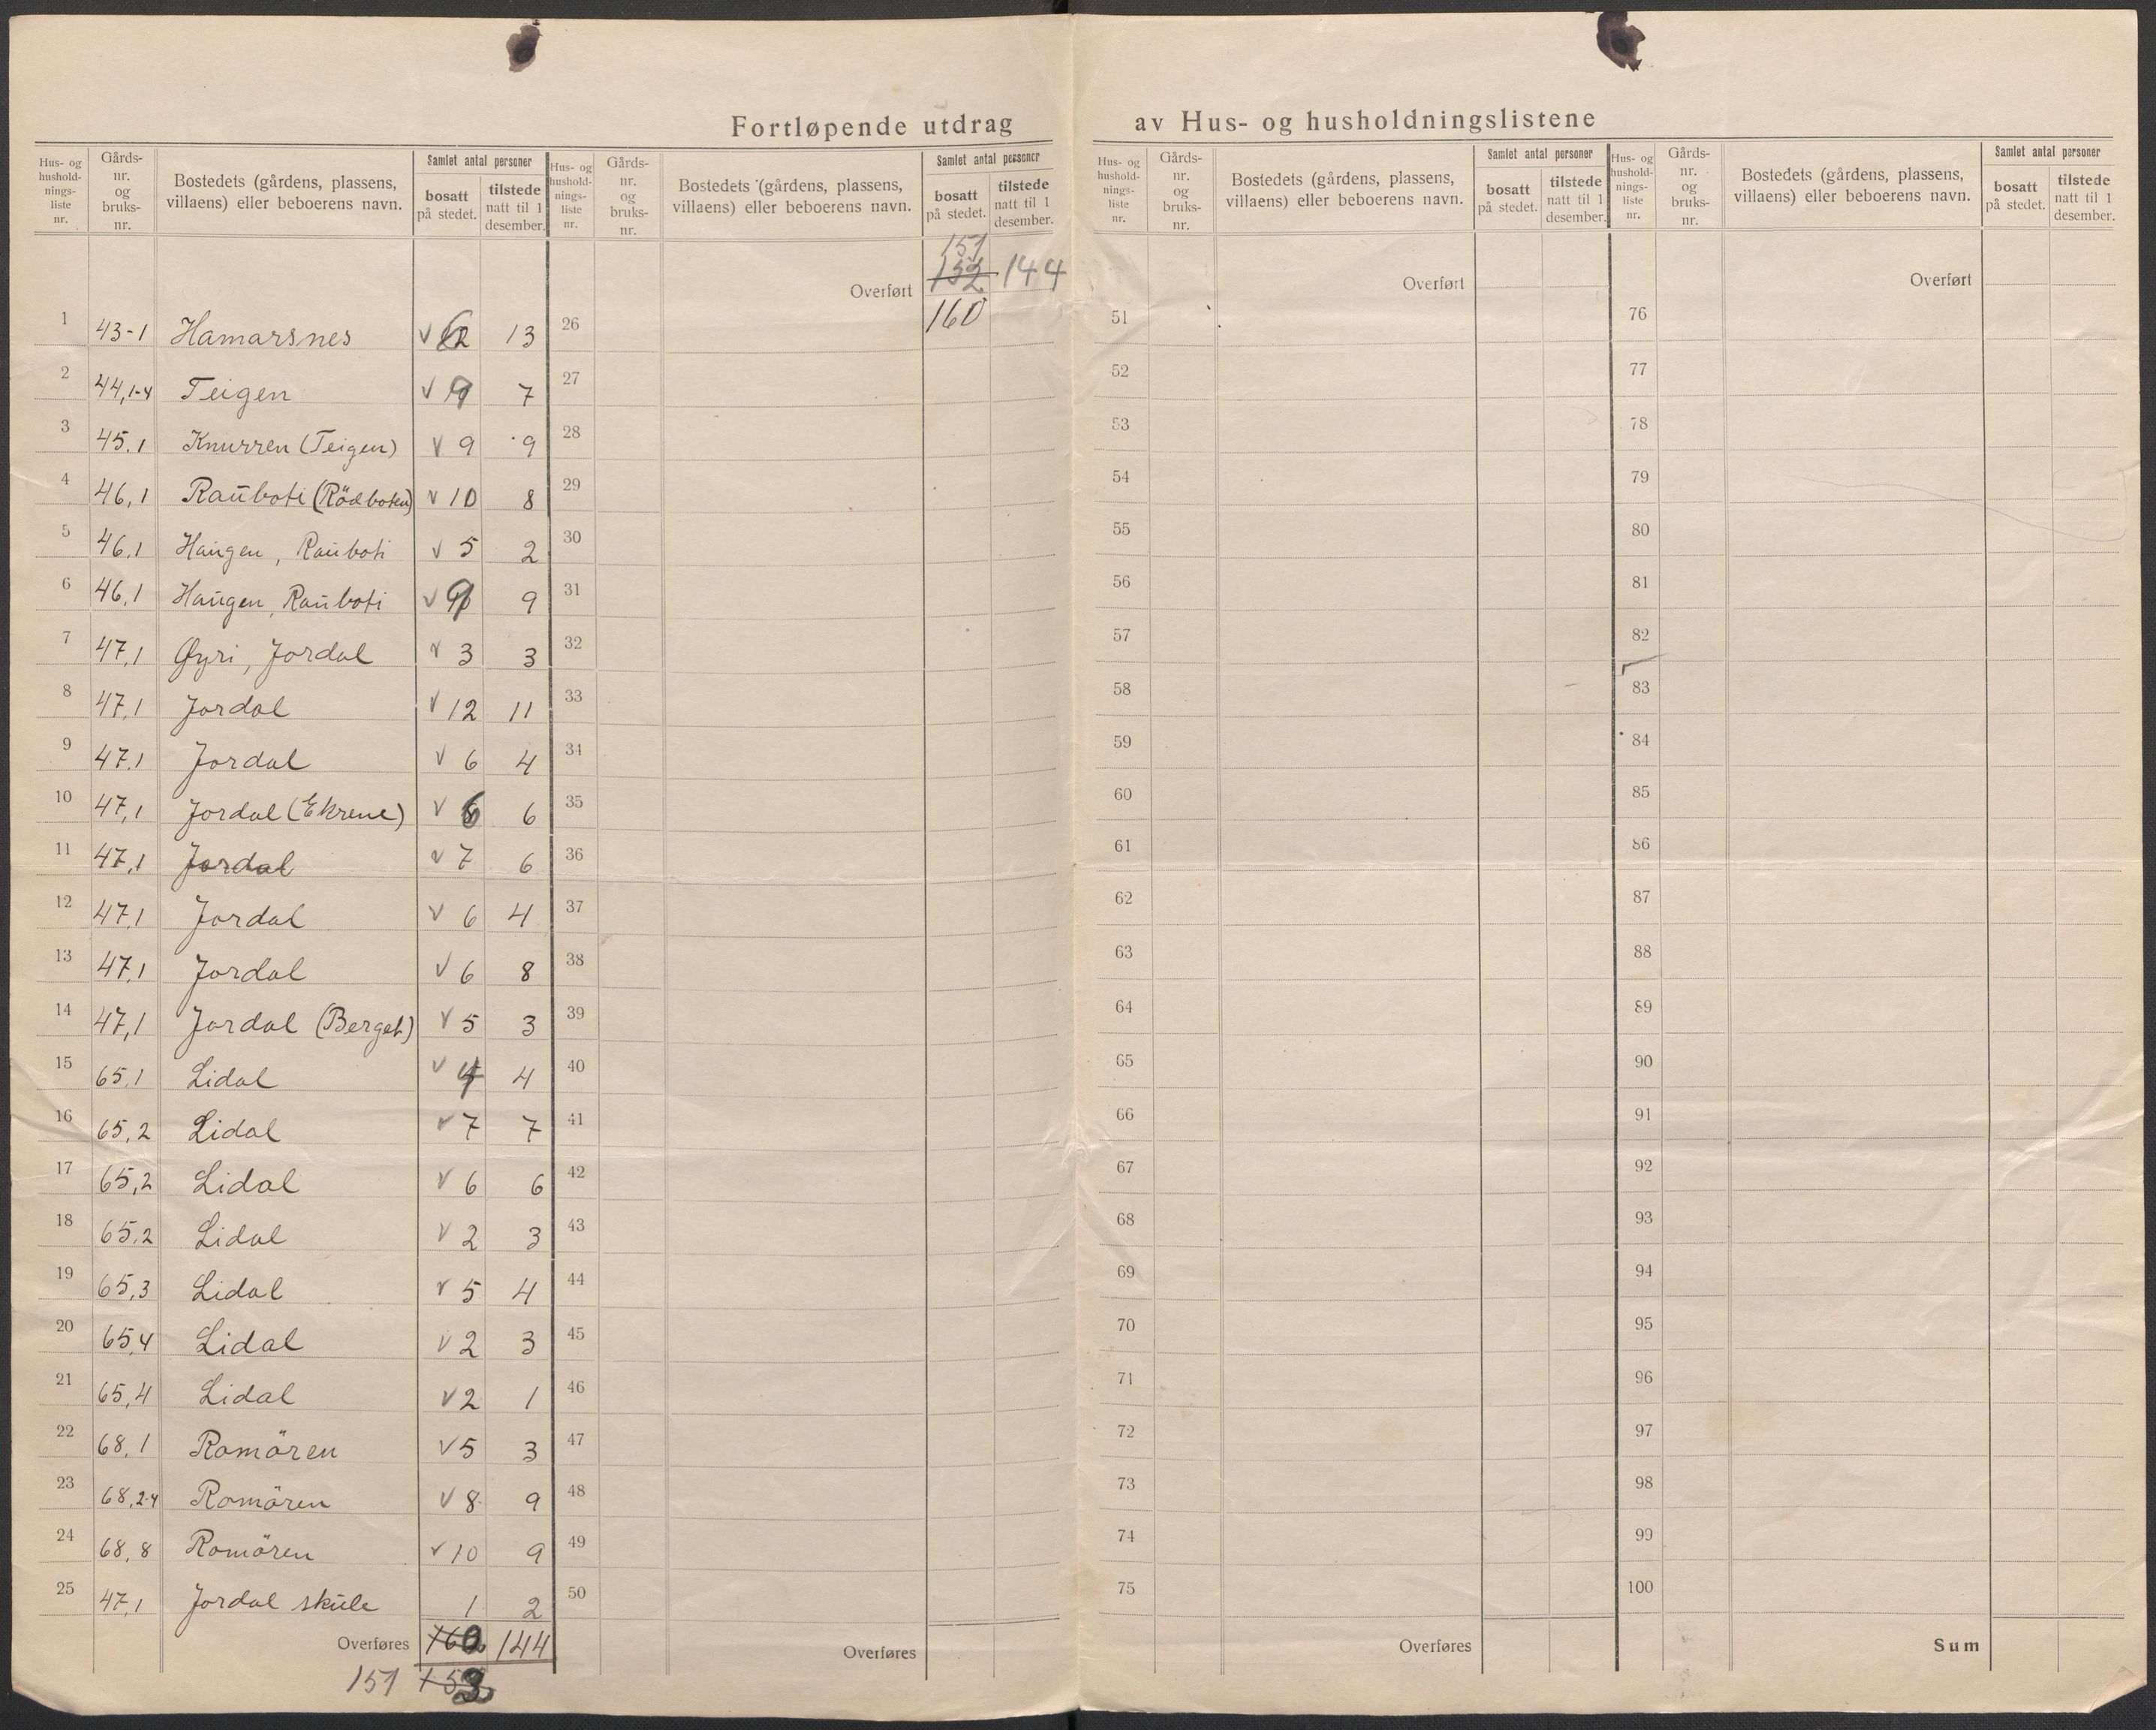 Fortløpende utdrag av Hus- og husholdningslistene
Hus- og hushold- nings- liste nr. Gårds- nr. og bruks- nr. Bostedets (gårdens, plassens, villaens) eller beboerens navn. Samlet antal personer bosatt på stedet. tilstede natt til 1 desember.
1 43-1 Hamarsnes V 13
2 44,1-4 Teigen V 9 7
3 45.1 Knurren (Teigen) V 9 9
4 46,1 Rauboti (Rödboten) V 10 8
5 46,1 Haugen, Rauboti V 5 2
6 46,1 Haugen, Rauboti V 9 9
7 47,1 Øyri, Jordal V 3 3
8 47,1 Jordal V 12 11
9 47,1 Jordal V 6 4
10 47,1 Jordal (Ekrene) V 6 6
11 47,1 Jordal V 7 6
12 47,1 Jordal V 6 4
13 47,1 Jordal V 6 8
14 47,1 Jordal (Berget) V 5 3
15 65,1 Lidal V 4 4
16 65,2 Lidal V 7 7
17 65,2 Lidal V 6 6
18 65,2 Lidal V 2 3
19 65,3 Lidal V 5 4
20 65,4 Lidal V 2 3
21 65,4 Lidal V 2 1
22 68,1 Romören V 5 3
23 68,2-4 Romören V 8 9
24 68,8 Romören V 10 9
25 47,1 Jordal skule 1 2
Overføres 160 144
151
Hus- og hushold- nings- liste nr. Gårds- nr. og bruks- nr. Bostedets (gårdens, plassens, villaens) eller beboerens navn. Samlet antal personer bosatt på stedet. tilstede natt til 1 desember.
151
Overført 152 144
160
26
27
28
29
30
31
32
33
34
35
36
37
38
39
40
41
42
43
44
45
46
47
48
49
50
Overføres
Hus- og hushold- nings- liste nr. Gårds- nr. og bruks- nr. Bostedets (gårdens, plassens, villaens) eller beboerens navn. Samlet antal personer bosatt på stedet. tilstede natt til 1 desember.
Overført
51
52
53
54
55
56
57
58
59
60
61
62
63
64
65
66
67
68
69
70
71
72
73
74
75
Overføres
Hus- og hushold- nings- liste nr. Gårds- nr. og bruks- nr. Bostedets (gårdens, plassens, villaens) eller beboerens navn. Samlet antal personer bosatt på stedet. tilstede natt til 1 desember.
Overført
76
77
78
79
80
81
82
83
84
85
86
87
88
89
90
91
92
93
94
95
96
97
98
99
100
Sum